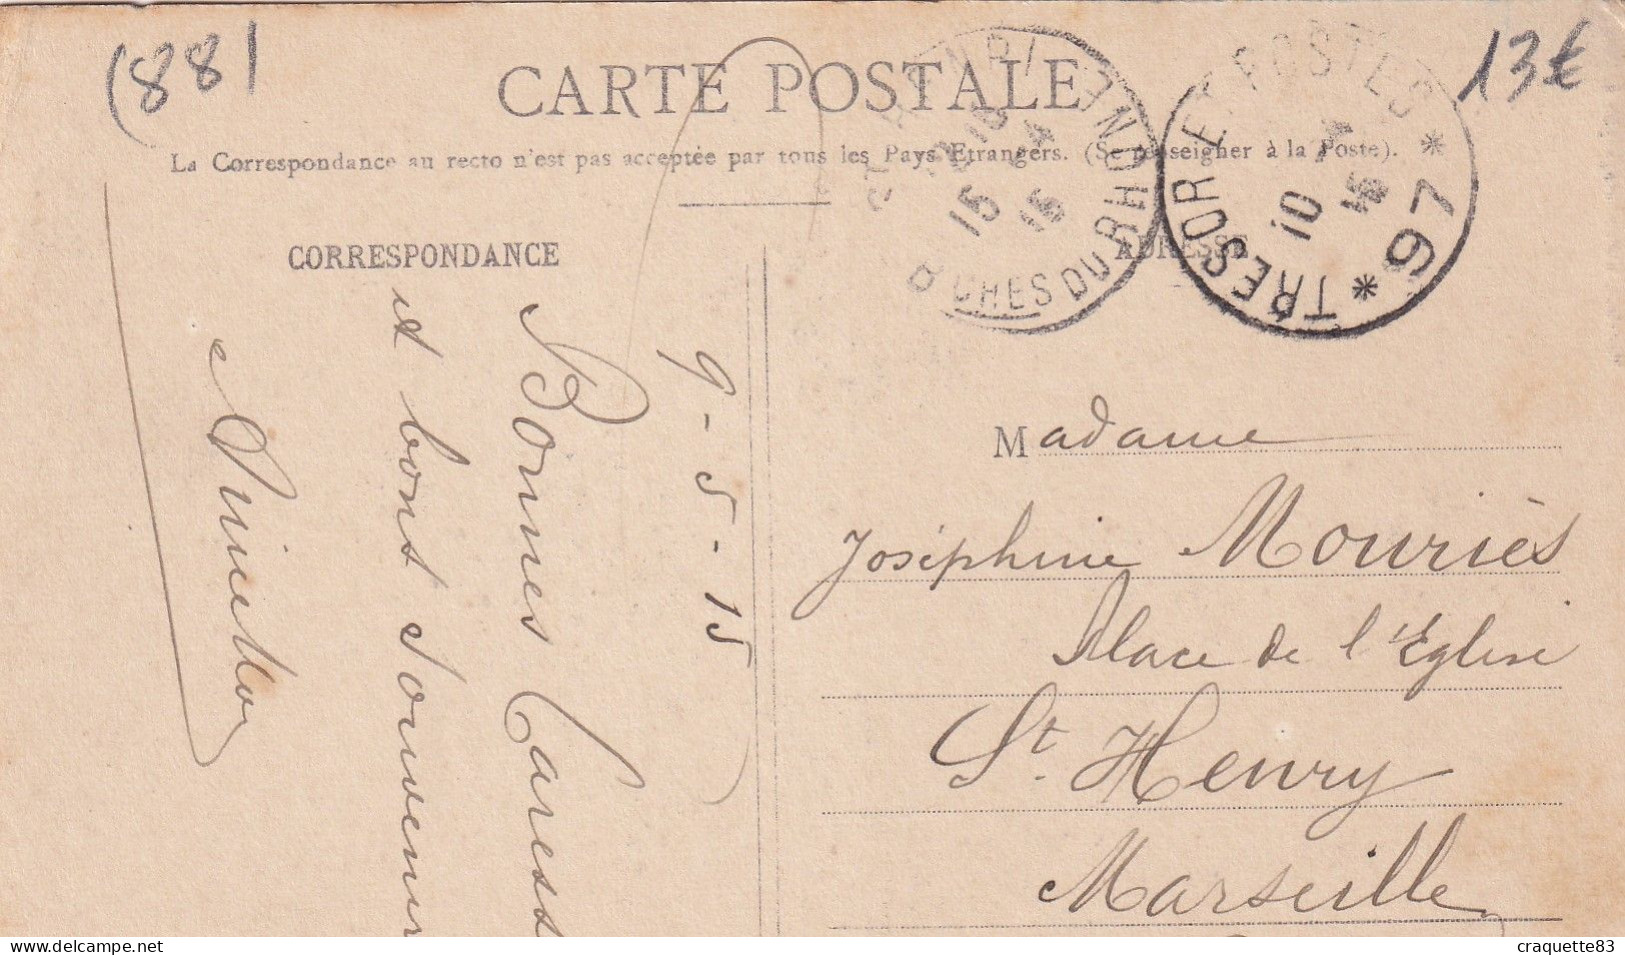 (88)
13€
CARTE POSTALE
La Correspondance au recto n'est pas acceptée par tous les Pays Etrangers. (Se renseigner à la Poste).
TRESOR ET POSTES * 97 *
10
15
15
CHES DU RHONE
CORRESPONDANCE
ADRESSE
9-5-15
Bonnes Caress
et bons Souvenir
Madame
Joséphine Mouriès
Place de l'Eglise
St. Henry
Marseille
craquette83